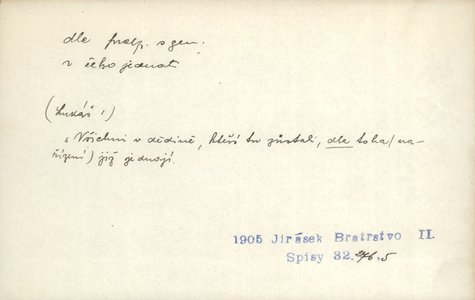 dle předp. s gen.
v čeho jednat
(Lukáš:)
„Všichni v dědině, kteří tu zůstali, dle toho (na-
řízení) již jednají.
1905 Jirásek Bratrstvo II.
Spisy 32. 276.5